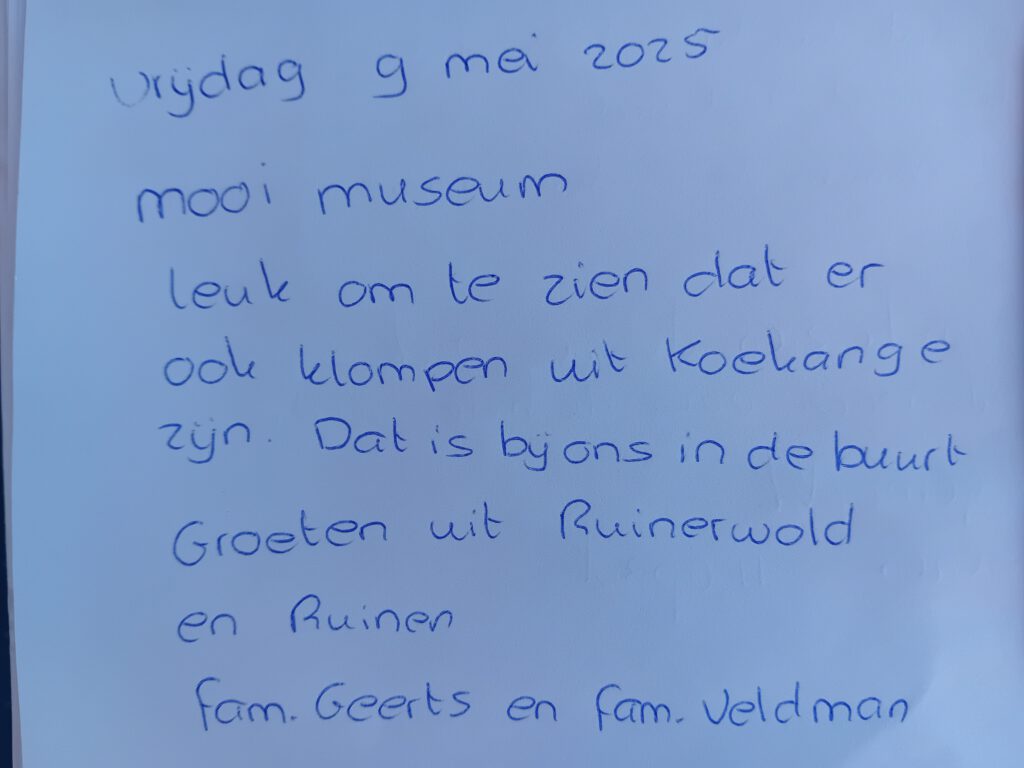 vrijdag 9 mei 2025
mooi museum
leuk om te zien dat er
ook klompen uit Koekange
zijn. Dat is bij ons in de buurt
Groeten uit Ruinerwold
en Ruinen
fam. Geerts en fam. Veldman